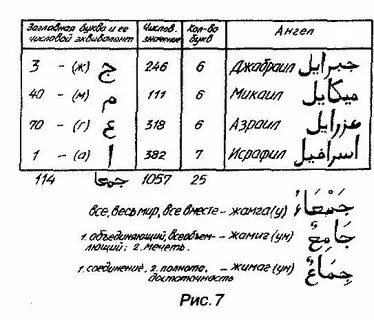 Заглавная буква и ее числовой эквивалент Числов. значение Кол-во букв Ангел
3 – (ж) ج 246 6 Джабраил جبرايل
40 – (м) م 111 6 Микаил ميكايل
70 – (г) ع 318 6 Азраил عزرايل
1 – (а) ا 382 7 Исрафил اسرافيل
114 جمعا 1057 25
جَمْعَاءُ
все, весь мир, все вместе – жамга(у)
1. объединяющий, всеобъем- – жамиг (ун) جَامِعٌ
лющий; 2. мечеть.
1. соединение, 2. полнота, – жимаг (ун) جِمَاعٌ
достаточность
Рис. 7